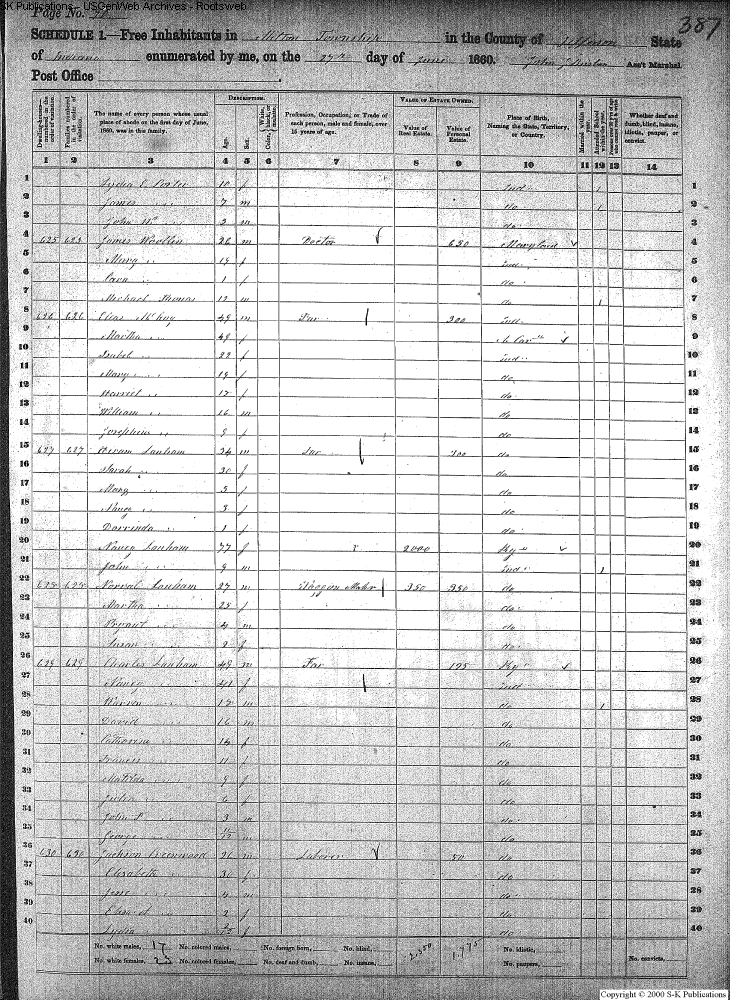 SK Publications - USGenWeb Archives - Rootsweb
Page No. 387
SCHEDULE 1.—Free Inhabitants in Milton Township in the County of Jefferson State
of Indiana enumerated by me, on the 27th day of June 1860. John Ass't Marshal
Post Office
Dwelling-houses—numbered in the order of visitation.
Families numbered in the order of visitation.
The name of every person whose usual place of abode on the first day of June, 1860, was in this family.
DESCRIPTION.
Age.
Sex.
Color, White, black, or mulatto.
Profession, Occupation, or Trade of each person, male and female, over 15 years of age.
VALUE OF ESTATE OWNED.
Value of Real Estate.
Value of Personal Estate.
Place of Birth, Naming the State, Territory, or Country.
Married within the year.
Attended School within the year.
Whether deaf and dumb, blind, insane, idiotic, pauper, or convict.
1 2 3 4 5 6 7 8 9 10 11 12 13 14
1 Lydia 10 f Ind 1 1
2 James " 7 m do 1 2
3 John " 3 m do 3
4 625 625 James 26 m Doctor 650 Maryland 4
5 Mary " 19 f Ind 5
6 1 f do 6
7 Michael Thomas 12 m do 1 7
8 626 626 Elias 49 m Far 300 Ind 8
9 Martha " 49 f 9
10 Isabel " 22 f Ind 10
11 Mary " 19 f do 11
12 Harriet " 17 f do 12
13 William " 16 m do 13
14 Josephine " 9 f do 14
15 627 627 Hiram Lanham 34 m Far 200 do 15
16 Sarah " 30 f do 16
17 Mary " 5 f do 17
18 " 3 f do 18
19 Dorrinda " 1 f do 19
20 Nancy Lanham 77 f 2000 Ky 20
21 John " 9 m Ind 1 21
22 628 628 Norval Lanham 27 m Waggon Maker 350 350 do 22
23 Martha " 25 f do 23
24 Bryant " 4 m do 24
25 Susan " 2 f do 25
26 629 629 Charles Lanham 49 m Far 125 Ky 26
27 Nancy " 41 f Ind 27
28 Warren " 18 m do 1 28
29 David " 16 m do 29
30 Catharine " 14 f do 30
31 Frances " 11 f do 31
32 Matilda " 9 f do 32
33 Julia " 6 f do 33
34 John " 3 m do 34
35 George " m do 35
36 630 630 Jackson Greenwood 26 m Laborer 50 do 36
37 Elizabeth " 30 f do 37
38 Jesse " 4 m do 38
39 " 2 f do 39
40 Lydia " f do 40
No. white males, 17 No. colored males, No. foreign born, No. blind, 1,775 No. idiotic,
No. white females, 23 No. colored females, No. deaf and dumb, No. insane, No. paupers, No. convicts,
Copyright © 2000 S-K Publications